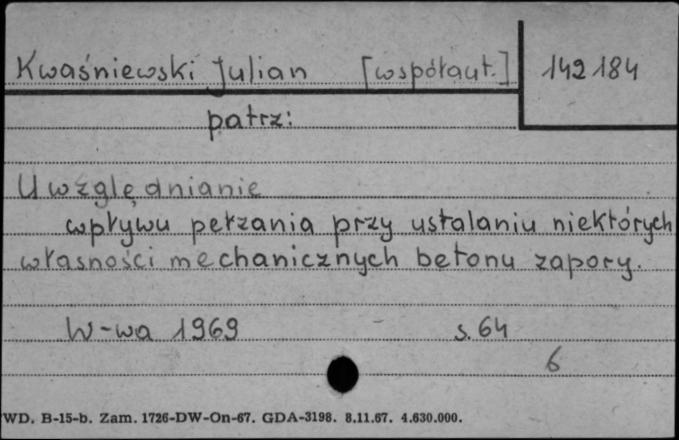 Kwaśniewski Julian [współaut.] 142184
patrz:
Uwzględnianie
wpływu pełzania przy ustalaniu niektórych
własności mechanicznych betonu zapory.
W-wa 1969 - s. 64
6
WD. B-15-b. Zam. 1726-DW-On-67. GDA-3198. 8.11.67. 4.630.000.